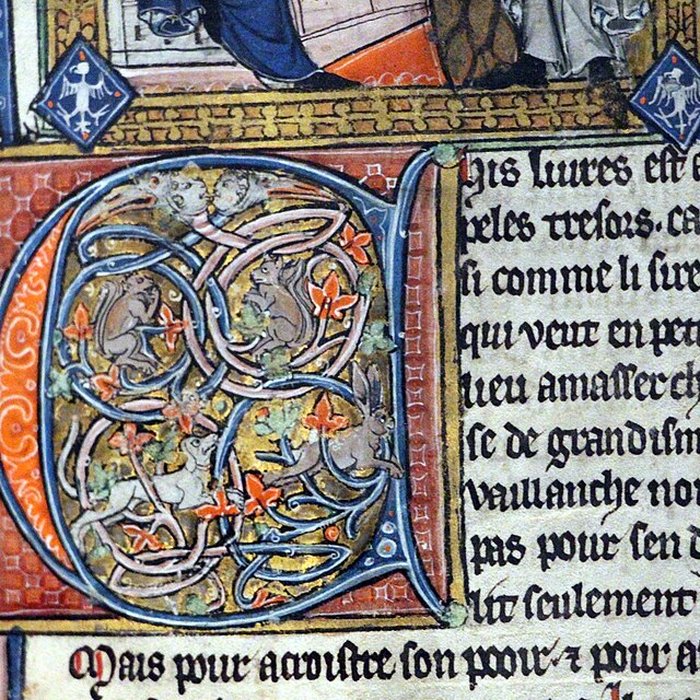 Chis liures est
peles tresors. ca
si comme li sire
qui veut en peti
lieu amasser ch
se de grandisim
vaillanche non
pas pour sen d
lit seulement
Mais pour acroistre son pooir ⁊ pour a